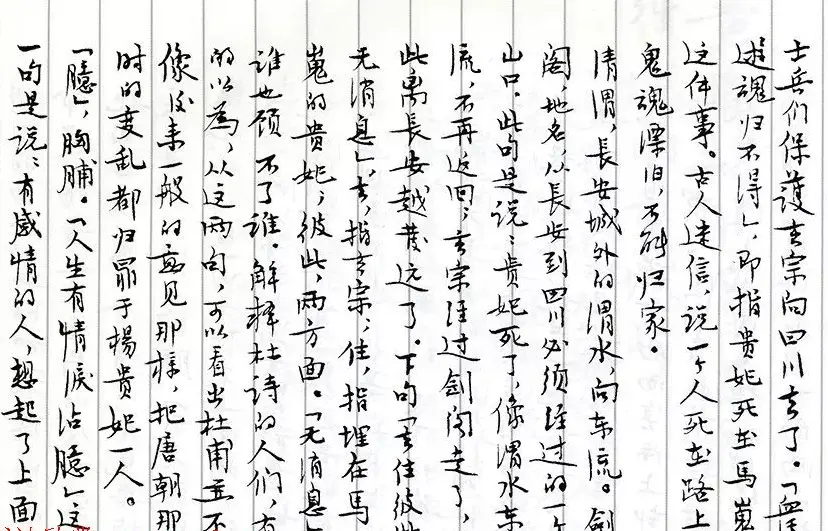 士兵们保護玄宗向四川去了。「血污
遊魂归不得」,即指贵妃死在馬嵬
这件事。古人迷信,说一个人死在路上
鬼魂漂泊,不能归家。
清渭,長安城外的渭水,向东流。劍
阁,地名,从長安到四川必须经过的一个
山口。此句是说:贵妃死了,像渭水东
流,不再返回;玄宗经过剑阁走了,
此离長安越发远了。下句「去住彼此
无消息」,去,指玄宗;住,指埋在馬
嵬的贵妃;彼此,两方面。「无消息」
谁也顾不了谁。解释杜诗的人们,有
的以為,从这两句,可以看出杜甫並不
像后来一般的意见那样,把唐朝那
时的变乱都归罪于楊貴妃一人。
「臆」,胸脯。「人生有情淚沾臆」这
一句是说:有感情的人,想起了上面